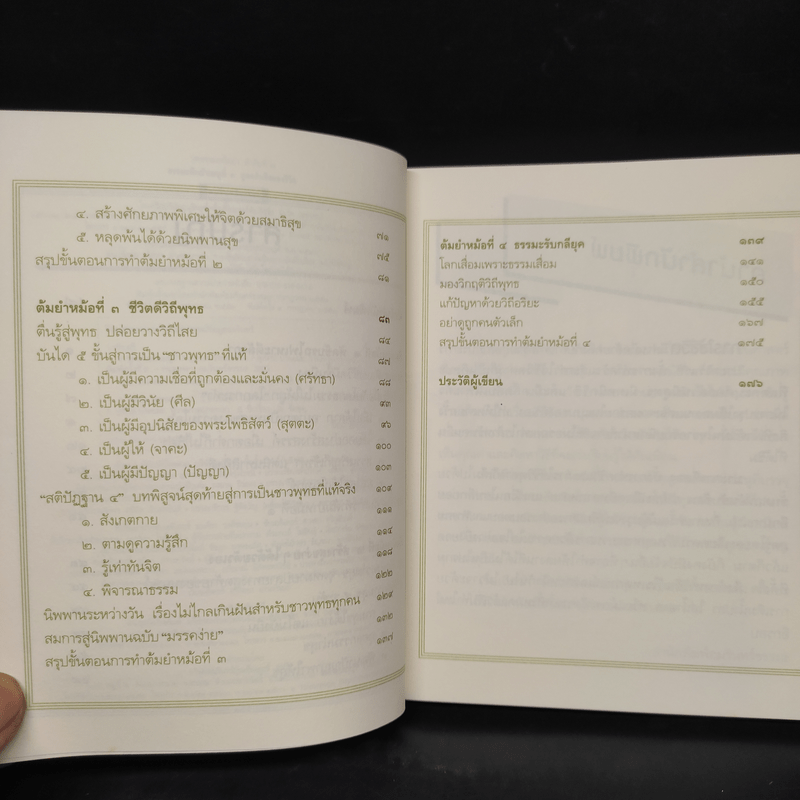 ๔. สร้างศักยภาพพิเศษให้จิตด้วยสมาธิสุข ๗๑
๕. หลุดพ้นได้ด้วยนิพพานสุข ๗๕
สรุปขั้นตอนการทำต้มยำหม้อที่ ๒ ๘๑
ต้มยำหม้อที่ ๓ ชีวิตดีวิถีพุทธ ๘๓
ตื่นรู้สู่พุทธ ปล่อยวางวิถีไสย ๘๔
บันได ๕ ขั้นสู่การเป็น “ชาวพุทธ” ที่แท้ ๘๗
๑. เป็นผู้มีความเชื่อที่ถูกต้องและมั่นคง (ศรัทธา) ๘๘
๒. เป็นผู้มีวินัย (ศีล) ๙๓
๓. เป็นผู้มีอุปนิสัยของพระโพธิสัตว์ (สุตตะ) ๙๖
๔. เป็นผู้ให้ (จาคะ) ๑๐๐
๕. เป็นผู้มีปัญญา (ปัญญา) ๑๐๓
“สติปัฏฐาน ๔” บทพิสูจน์สุดท้ายสู่การเป็นชาวพุทธที่แท้จริง ๑๐๙
๑. สังเกตกาย ๑๑๑
๒. ตามดูความรู้สึก ๑๑๔
๓. รู้เท่าทันจิต ๑๑๘
๔. พิจารณาธรรม ๑๒๒
นิพพานระหว่างวัน เรื่องไม่ไกลเกินฝันสำหรับชาวพุทธทุกคน ๑๒๙
สมการสู่นิพพานฉบับ “มรรคง่าย” ๑๓๒
สรุปขั้นตอนการทำต้มยำหม้อที่ ๓ ๑๓๗
ต้มยำหม้อที่ ๔ ธรรมะรับกลียุค ๑๓๙
โลกเสื่อมเพราะธรรมเสื่อม ๑๔๑
มองวิกฤติวิถีพุทธ ๑๕๐
แก้ปัญหาด้วยวิถีอริยะ ๑๕๕
อย่าดูถูกคนตัวเล็ก ๑๖๗
สรุปขั้นตอนการทำต้มยำหม้อที่ ๔ ๑๗๕
ประวัติผู้เขียน ๑๗๖